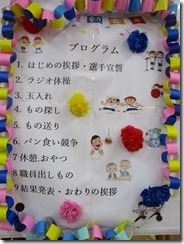 プログラム
1. はじめの挨拶・選手宣誓
2. ラジオ体操
3. 玉入れ
4. もの探し
5. もの送り
6. パン食い競争
7 休憩,おやつ
8. 職員出しもの
9 結果発表・おわりの挨拶